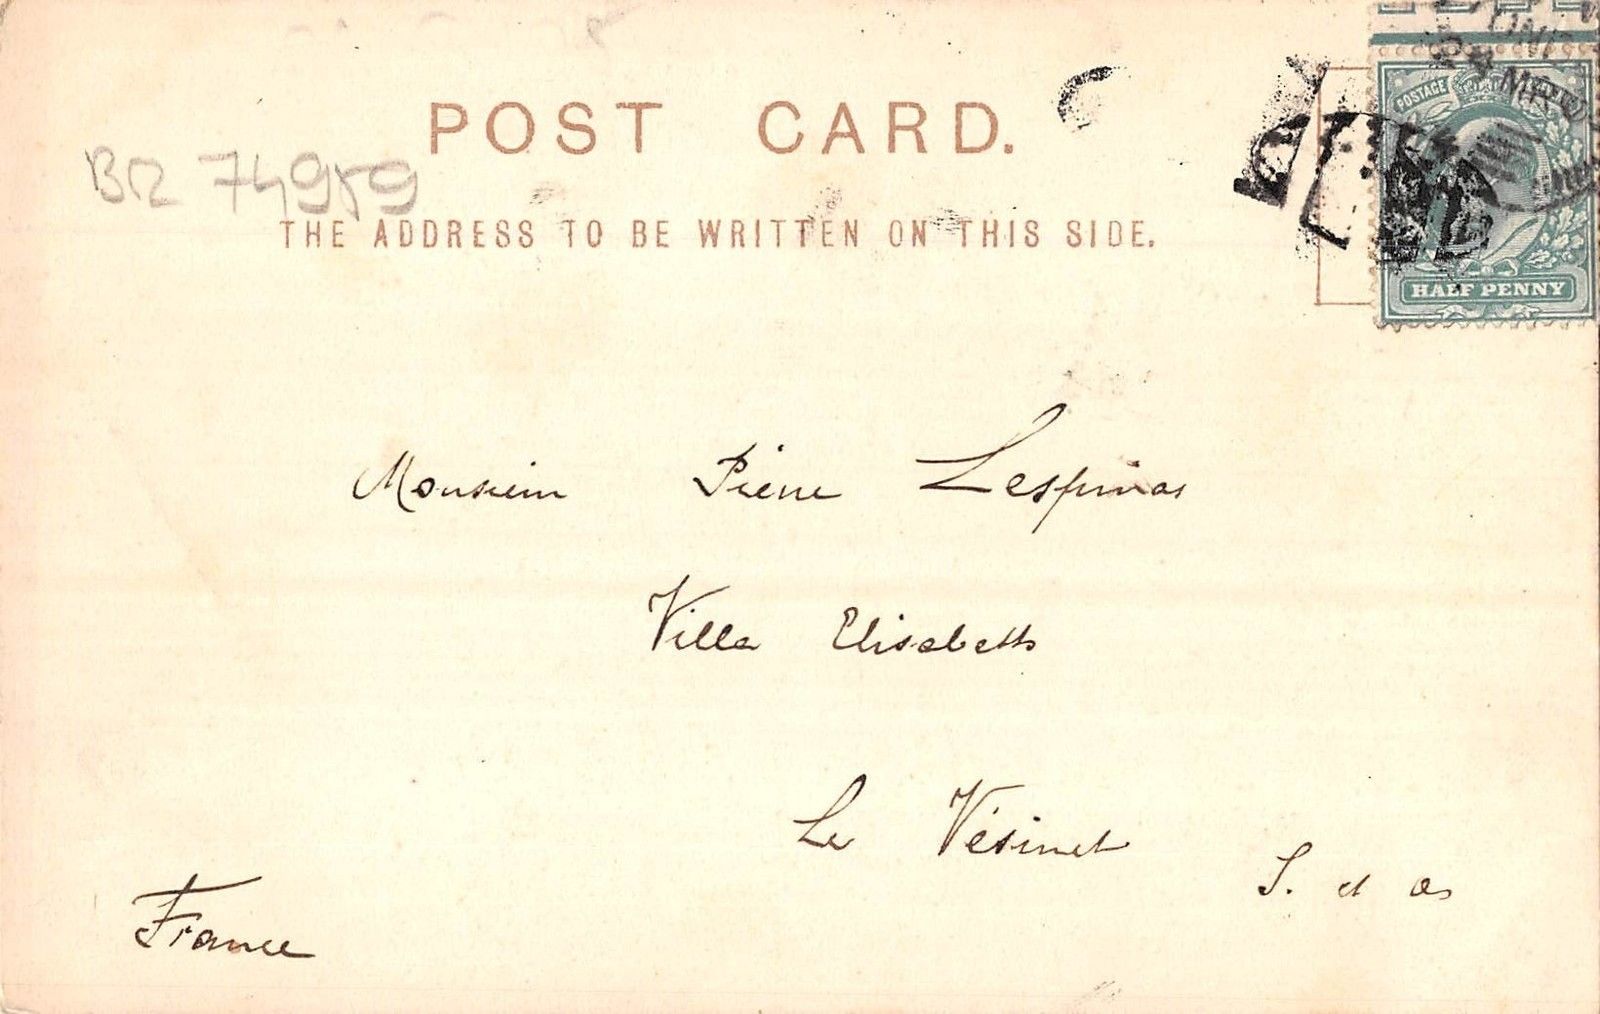 POST CARD.
BR 74959
THE ADDRESS TO BE WRITTEN ON THIS SIDE.
POSTAGE
HALF PENNY
Monsieur Pierre Lespinas
Villa Elisabeth
Le Vésinet
S. et O.
France